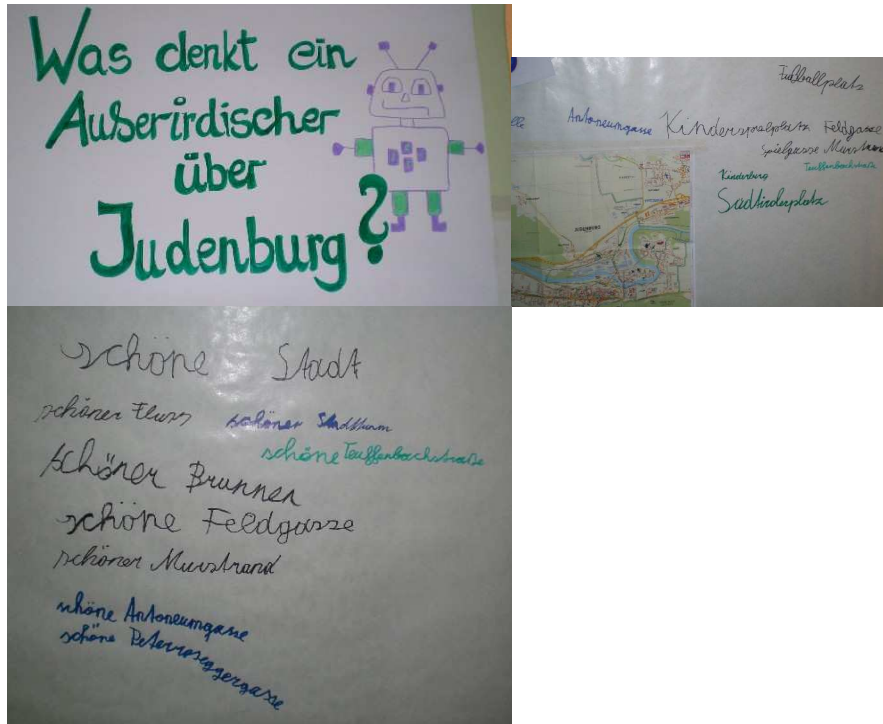 Was denkt ein
Außerirdischer
über
Judenburg?
Fußballplatz
Antoneumgasse Kinderspielplatz Feldgasse
Spielgasse Murstrand
Teuffenbachstraße
Kinderburg
JUDENBURG
schöne Stadt
schöner Fluss schöner Stadtturm
schöne Teuffenbachstraße
schöner Brunnen
schöne Feldgasse
schöner Murstrand
schöne Antoneumgasse
schöne Peterroseggergasse